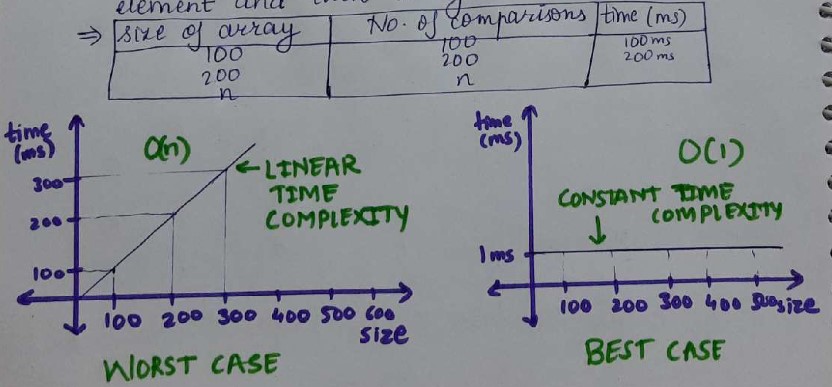 element and
⇒ size of array No. of comparisons time (ms)
100 100 100 ms
200 200 200 ms
n n
time (ms)
O(n)
300
200
100
← LINEAR
TIME
COMPLEXITY
100 200 300 400 500 600
size
WORST CASE
time (ms)
O(1)
CONSTANT TIME
COMPLEXITY
1ms
100 200 300 400 500 size
BEST CASE